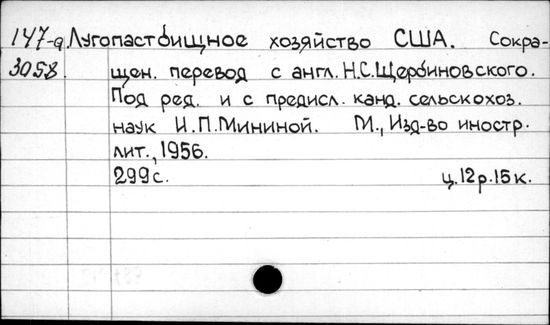 147-а Лугопастбищное хозяйство США. Сокра-
3058. щен. перевод с англ. Н.С.Щербиновского.
Под ред. и с предисл. канд. сельскохоз.
наук И.П.Мининой. М., Изд-во иностр.
лит., 1956.
299с. ц.12р.15к.